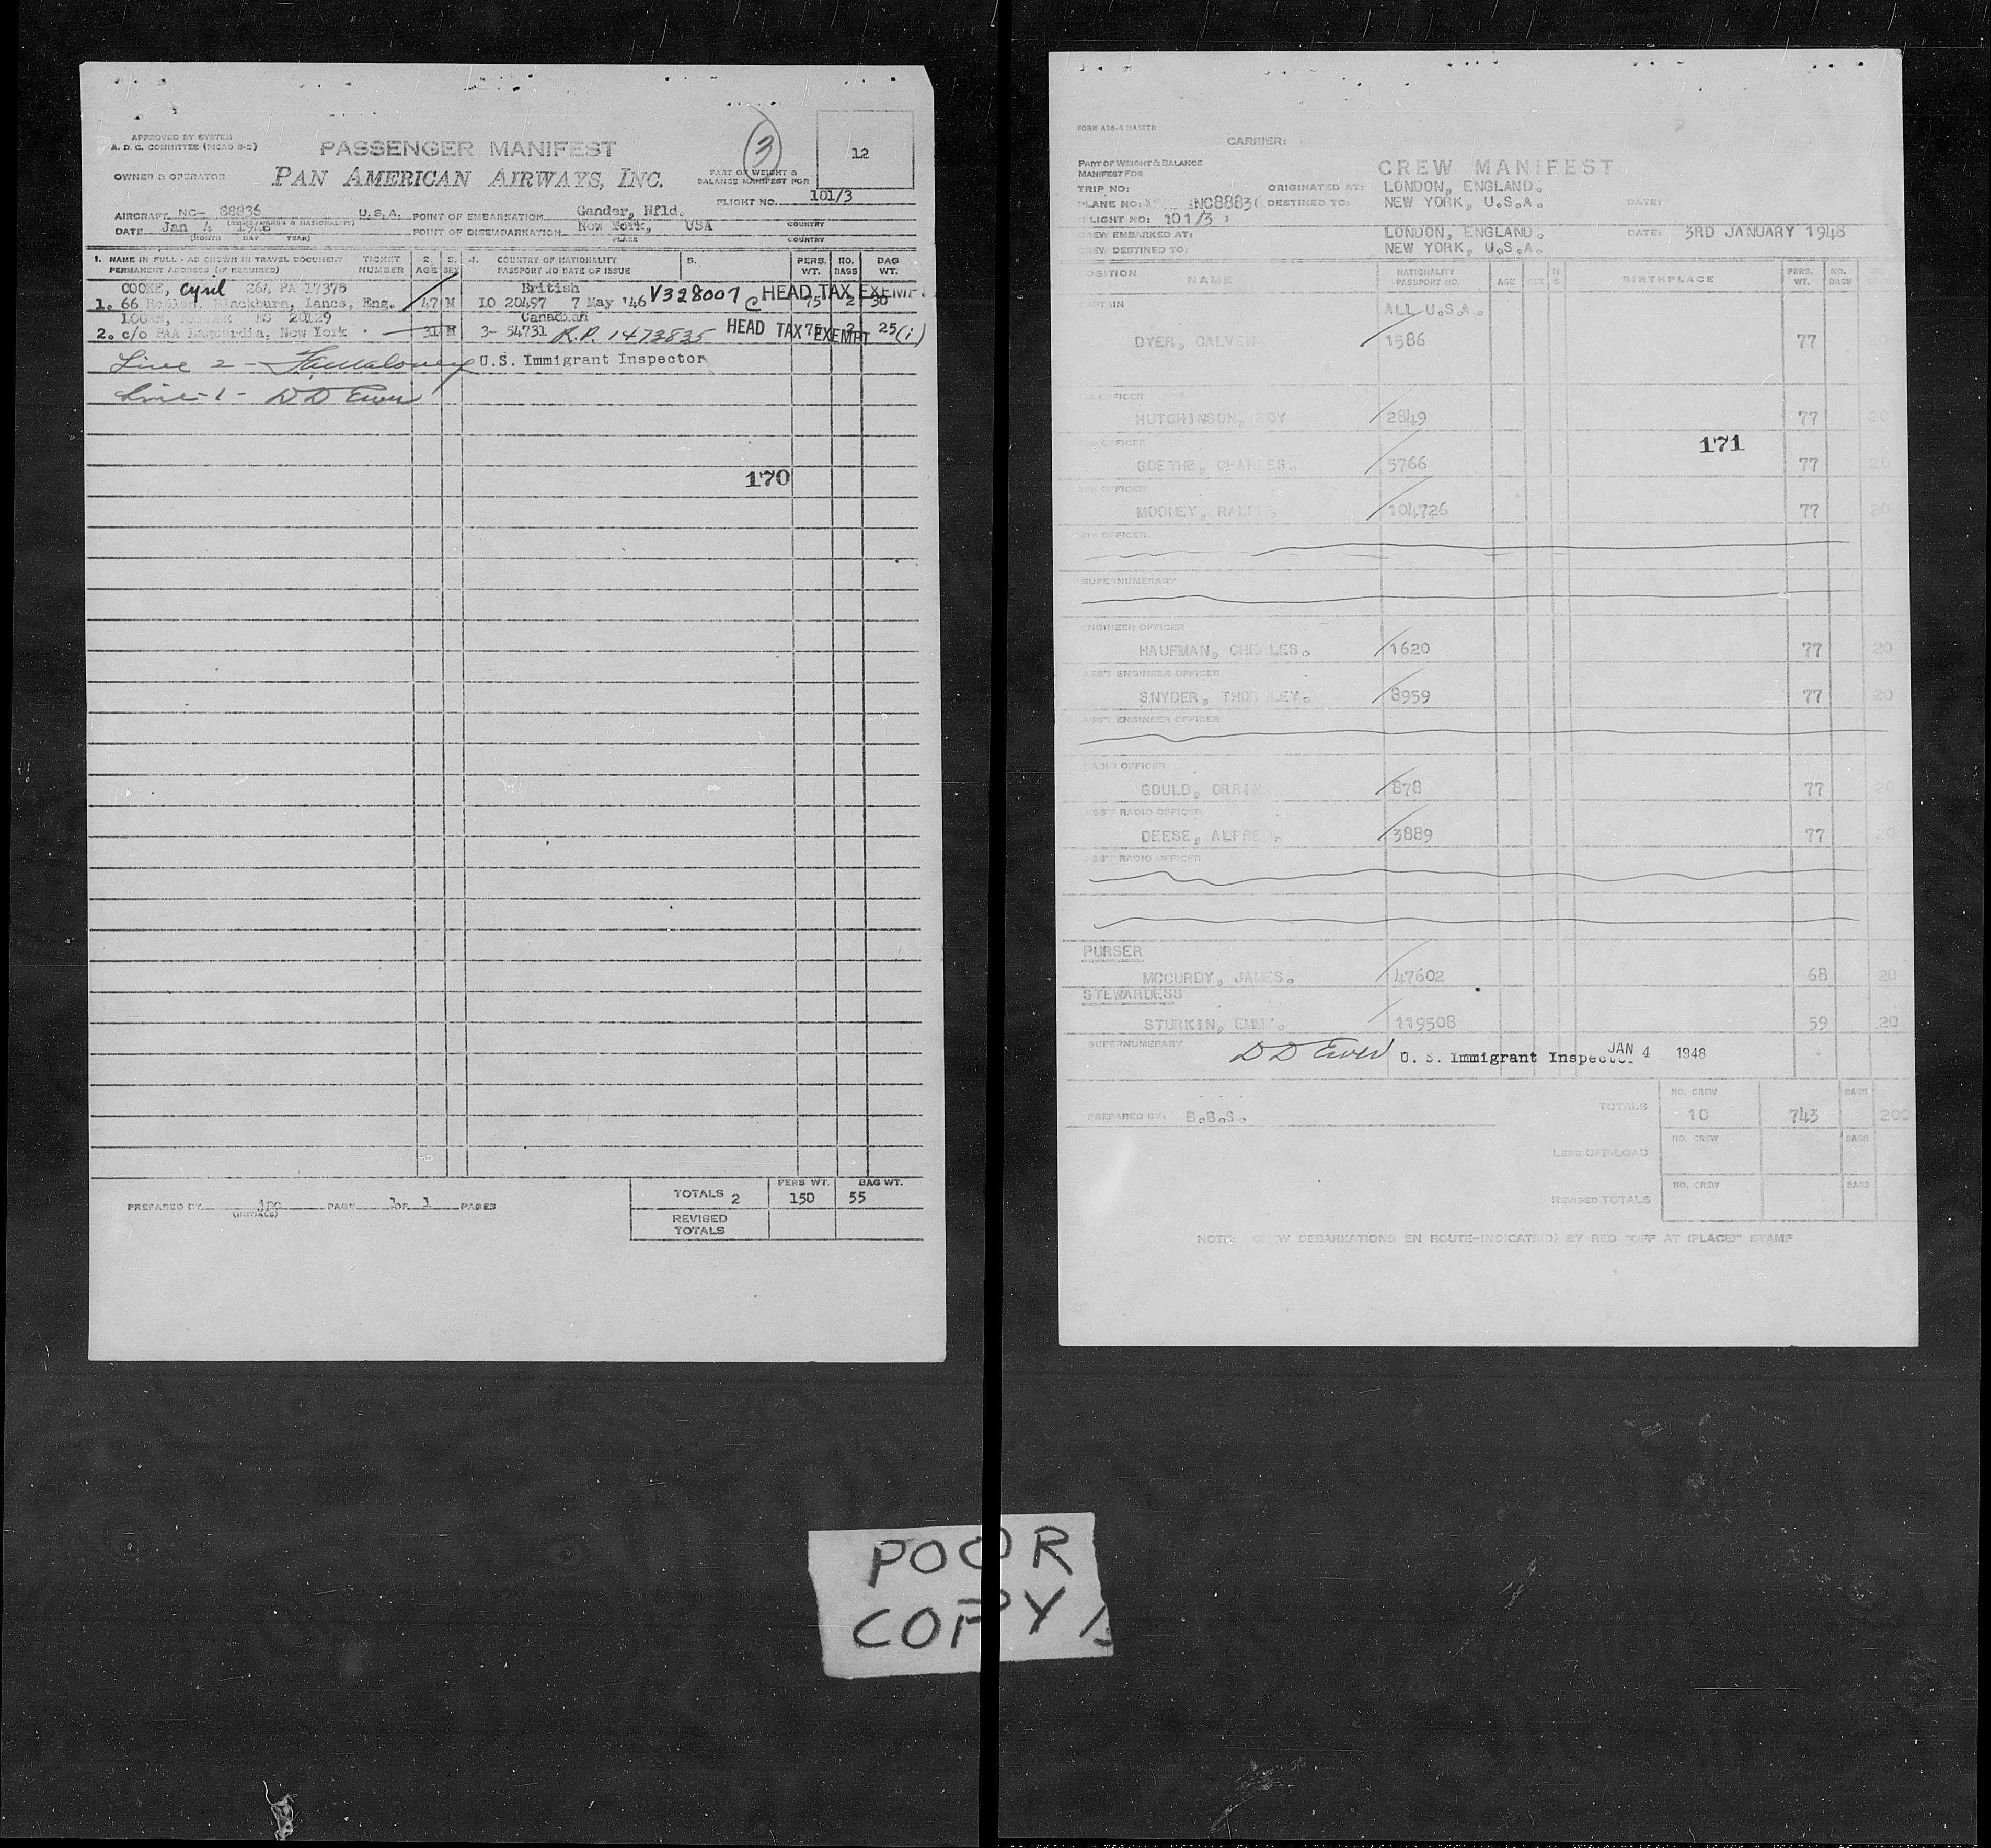 APPROVED BY SYSTEM
A. D. C. COMMITTEE (PICAO
PASSENGER MANIFEST
3
12
OWNER & OPERATOR
PAN AMERICAN AIRWAYS, INC.
PART OF WEIGHT &
BALANCE MANIFEST FOR
FLIGHT NO. 101/3
AIRCRAFT NC- 88836 U.S.A. POINT OF EMBARKATION Gander, Nfld. COUNTRY
DATE Jan 4 1948 POINT OF DISEMBARKATION New York, USA
(MONTH DAY YEAR) PLACE COUNTRY
1. NAME IN FULL - AS SHOWN IN TRAVEL DOCUMENT TICKET 2. 3. 4. COUNTRY OF NATIONALITY 5. PERS. NO. BAG
PERMANENT ADDRESS (IF REQUIRED) NUMBER AGE SEX PASSPORT NO DATE OF ISSUE WT. BAGS WT.
COOKE, Cyril 264 PA 17378 British
1. 66 Blackburn, Lancs, Eng. 47 M IO 20497 7 May '46 V328007 C HEAD TAX EXEMPT 75 2 30
20129 Canadian
2. c/o PAA Laguardia, New York 31 M 3- 54731 R.P. 1473835 HEAD TAX EXEMPT 75 2 25 (1)
Line 2 - U.S. Immigrant Inspector
Line - 1 - D D Ewer
170
PERS WT. BAG WT.
TOTALS 2 150 55
PREPARED BY PAGE 1 OF 1 PAGES
(INITIALS)
REVISED
TOTALS
FORM A36-4 MASTER
CARRIER:
PART OF WEIGHT & BALANCE
MANIFEST FOR
CREW MANIFEST
TRIP NO: ORIGINATED AT: LONDON, ENGLAND.
PLANE NO: NC88836 DESTINED TO: NEW YORK, U.S.A. DATE:
FLIGHT NO: 101/3
CREW EMBARKED AT: LONDON, ENGLAND. DATE: 3RD JANUARY 1948
CREW DESTINED TO: NEW YORK, U.S.A.
POSITION NAME NATIONALITY PASSPORT NO. AGE SEX BIRTHPLACE PERS. WT. NO. BAGS
CAPTAIN ALL U.S.A.
DYER, CALVEN 1586 77 20
OFFICER
HUTCHINSON, ROY 2849 77 20
OFFICER
171
GOETHE, CHARLES. 5766 77 20
OFFICER
MOONEY, RALPH. 104726 77 20
OFFICER
SUPERNUMERARY
ENGINEER OFFICER
HAUFMAN, CHARLES. 1620 77 20
ASS'T ENGINEER OFFICER
SNYDER, 8959 77 20
ASS'T ENGINEER OFFICER
RADIO OFFICER
GOULD, ORRIN 878 77 20
ASS'T RADIO OFFICER
DEESE, ALFRED. 3889 77 20
ASS'T RADIO OFFICER
PURSER
MCCURDY, JAMES. 47602 68 20
STEWARDESS
STURKIN, EMMY. 119508 59 20
SUPERNUMERARY
D D Ewer U. S. Immigrant Inspector JAN 4 1948
NO. CREW BAGS
PREPARED BY: B.B.S. TOTALS 10 743 200
NO. CREW BAGS
LESS OFF-LOAD
NO. CREW BAGS
REVISED TOTALS
NOTE: CREW DEBARKATIONS EN ROUTE-INDICATE(D) BY RED "OFF AT (PLACE)" STAMP
POOR
COPY